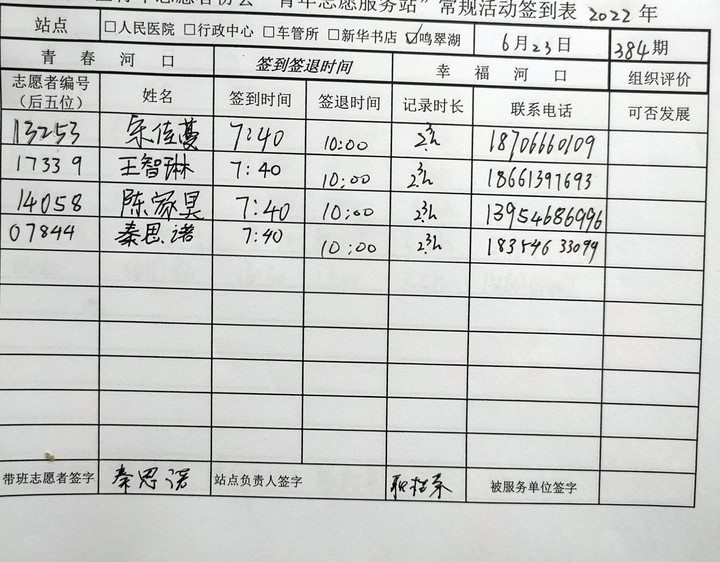 青年志愿服务站”常规活动签到表 2022 年
站点 □人民医院 □行政中心 □车管所 □新华书店 ☑鸣翠湖 6月23日 384期
青春河口 签到签退时间 幸福河口 组织评价
志愿者编号（后五位） 姓名 签到时间 签退时间 记录时长 联系电话 可否发展
13253 宋佳蔓 7:40 10:00 2.3h 18706660109
17339 王智琳 7:40 10:00 2.3h 18661397693
14058 陈家昊 7:40 10:00 2.3h 13954686996
07844 秦思诺 7:40 10:00 2.3h 18354633099
带班志愿者签字 秦思诺 站点负责人签字 被服务单位签字